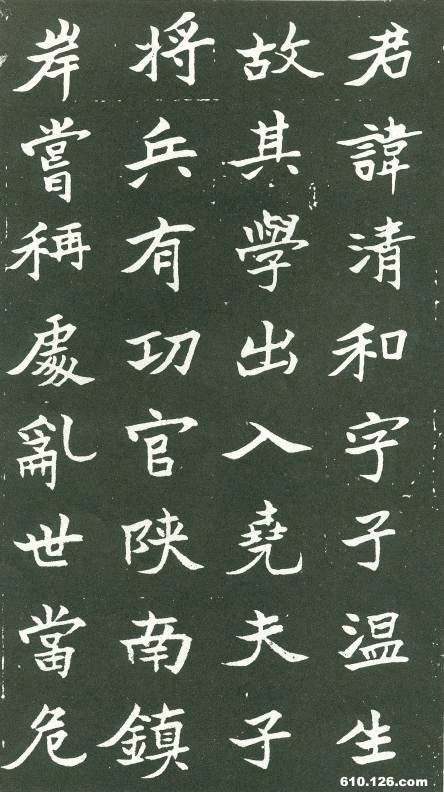 君諱清和字子温生
故其學出入堯夫子
將兵有功官陕南鎮
岸嘗稱處亂世當危
610.126.com